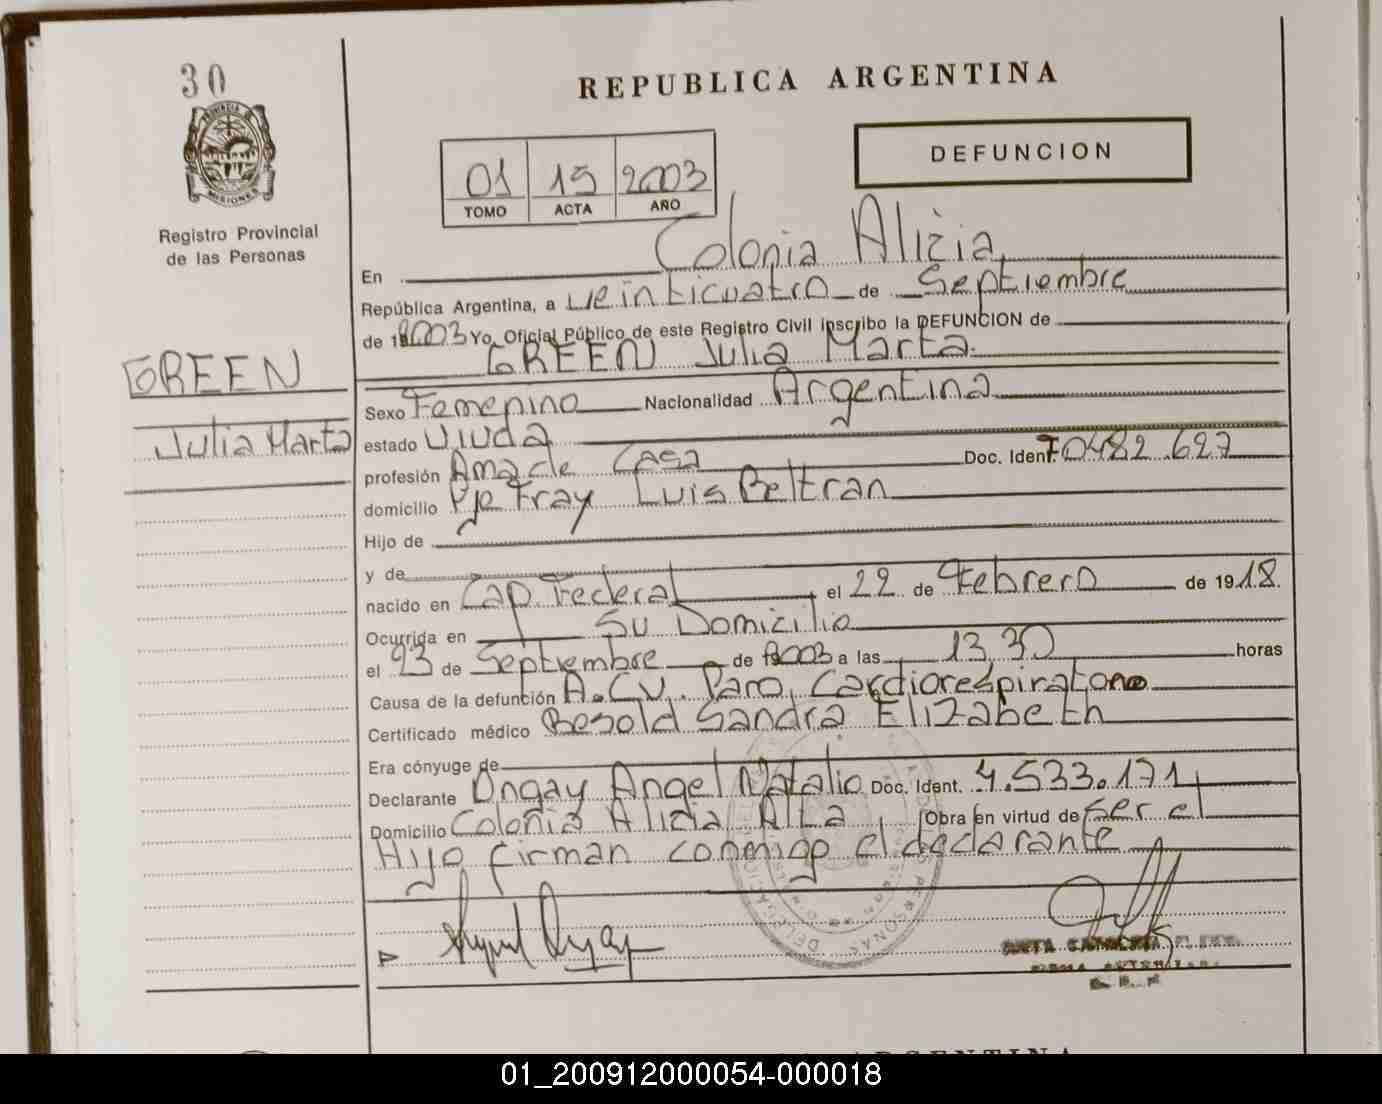 30
PROVINCIA DE
MISIONES
Registro Provincial
de las Personas
GREEN
Julia Marta
REPUBLICA ARGENTINA
DEFUNCION
01 15 2003
TOMO ACTA AÑO
En Colonia Alicia
República Argentina, a veinticuatro de Septiembre
de 2003 Yo, Oficial Público de este Registro Civil inscribo la DEFUNCION de
GREEN Julia Marta.
Sexo Femenino Nacionalidad Argentina
estado Viuda
profesión Ama de Casa Doc. Ident. F0482.627
domicilio Pje Fray Luis Beltran
Hijo de
y de
nacido en Cap. Federal el 22 de Febrero de 1918.
Ocurrida en Su Domicilio
el 23 de Septiembre de 2003 a las 13,30 horas
Causa de la defunción A.C.V. Paro Cardiorespiratorio
Certificado médico Besold Sandra Elizabeth
Era cónyuge de
Declarante Ongay Angel Natalio Doc. Ident. 4.533.171
Domicilio Colonia Alicia Alta Obra en virtud de Ser el
Hijo firman conmigo el declarante
REPUBLICA ARGENTINA
01_200912000054-000018